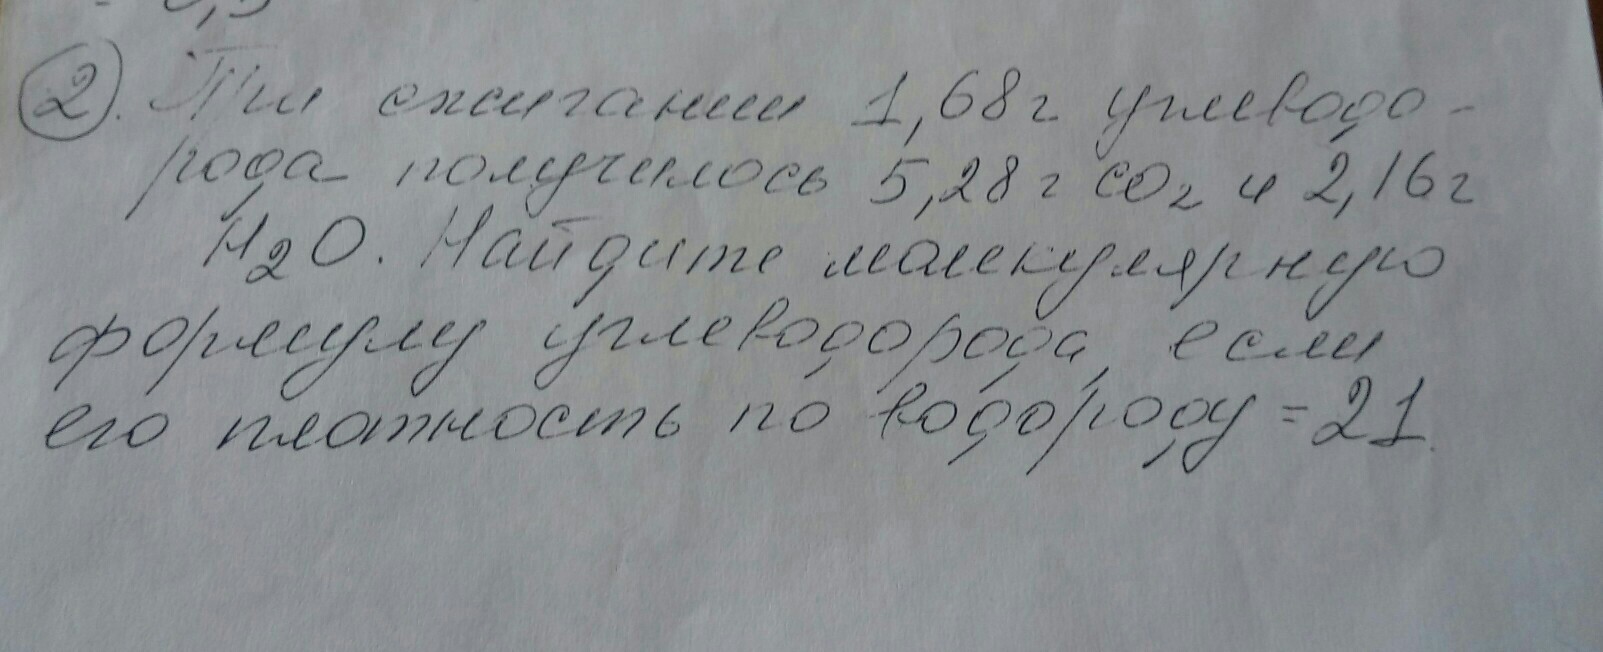 2. При сжигании 1,68г углеводо-
рода получилось 5,28г CO2 и 2,16г
H2O. Найдите молекулярную
формулу углеводорода, если
его плотность по водороду = 21.